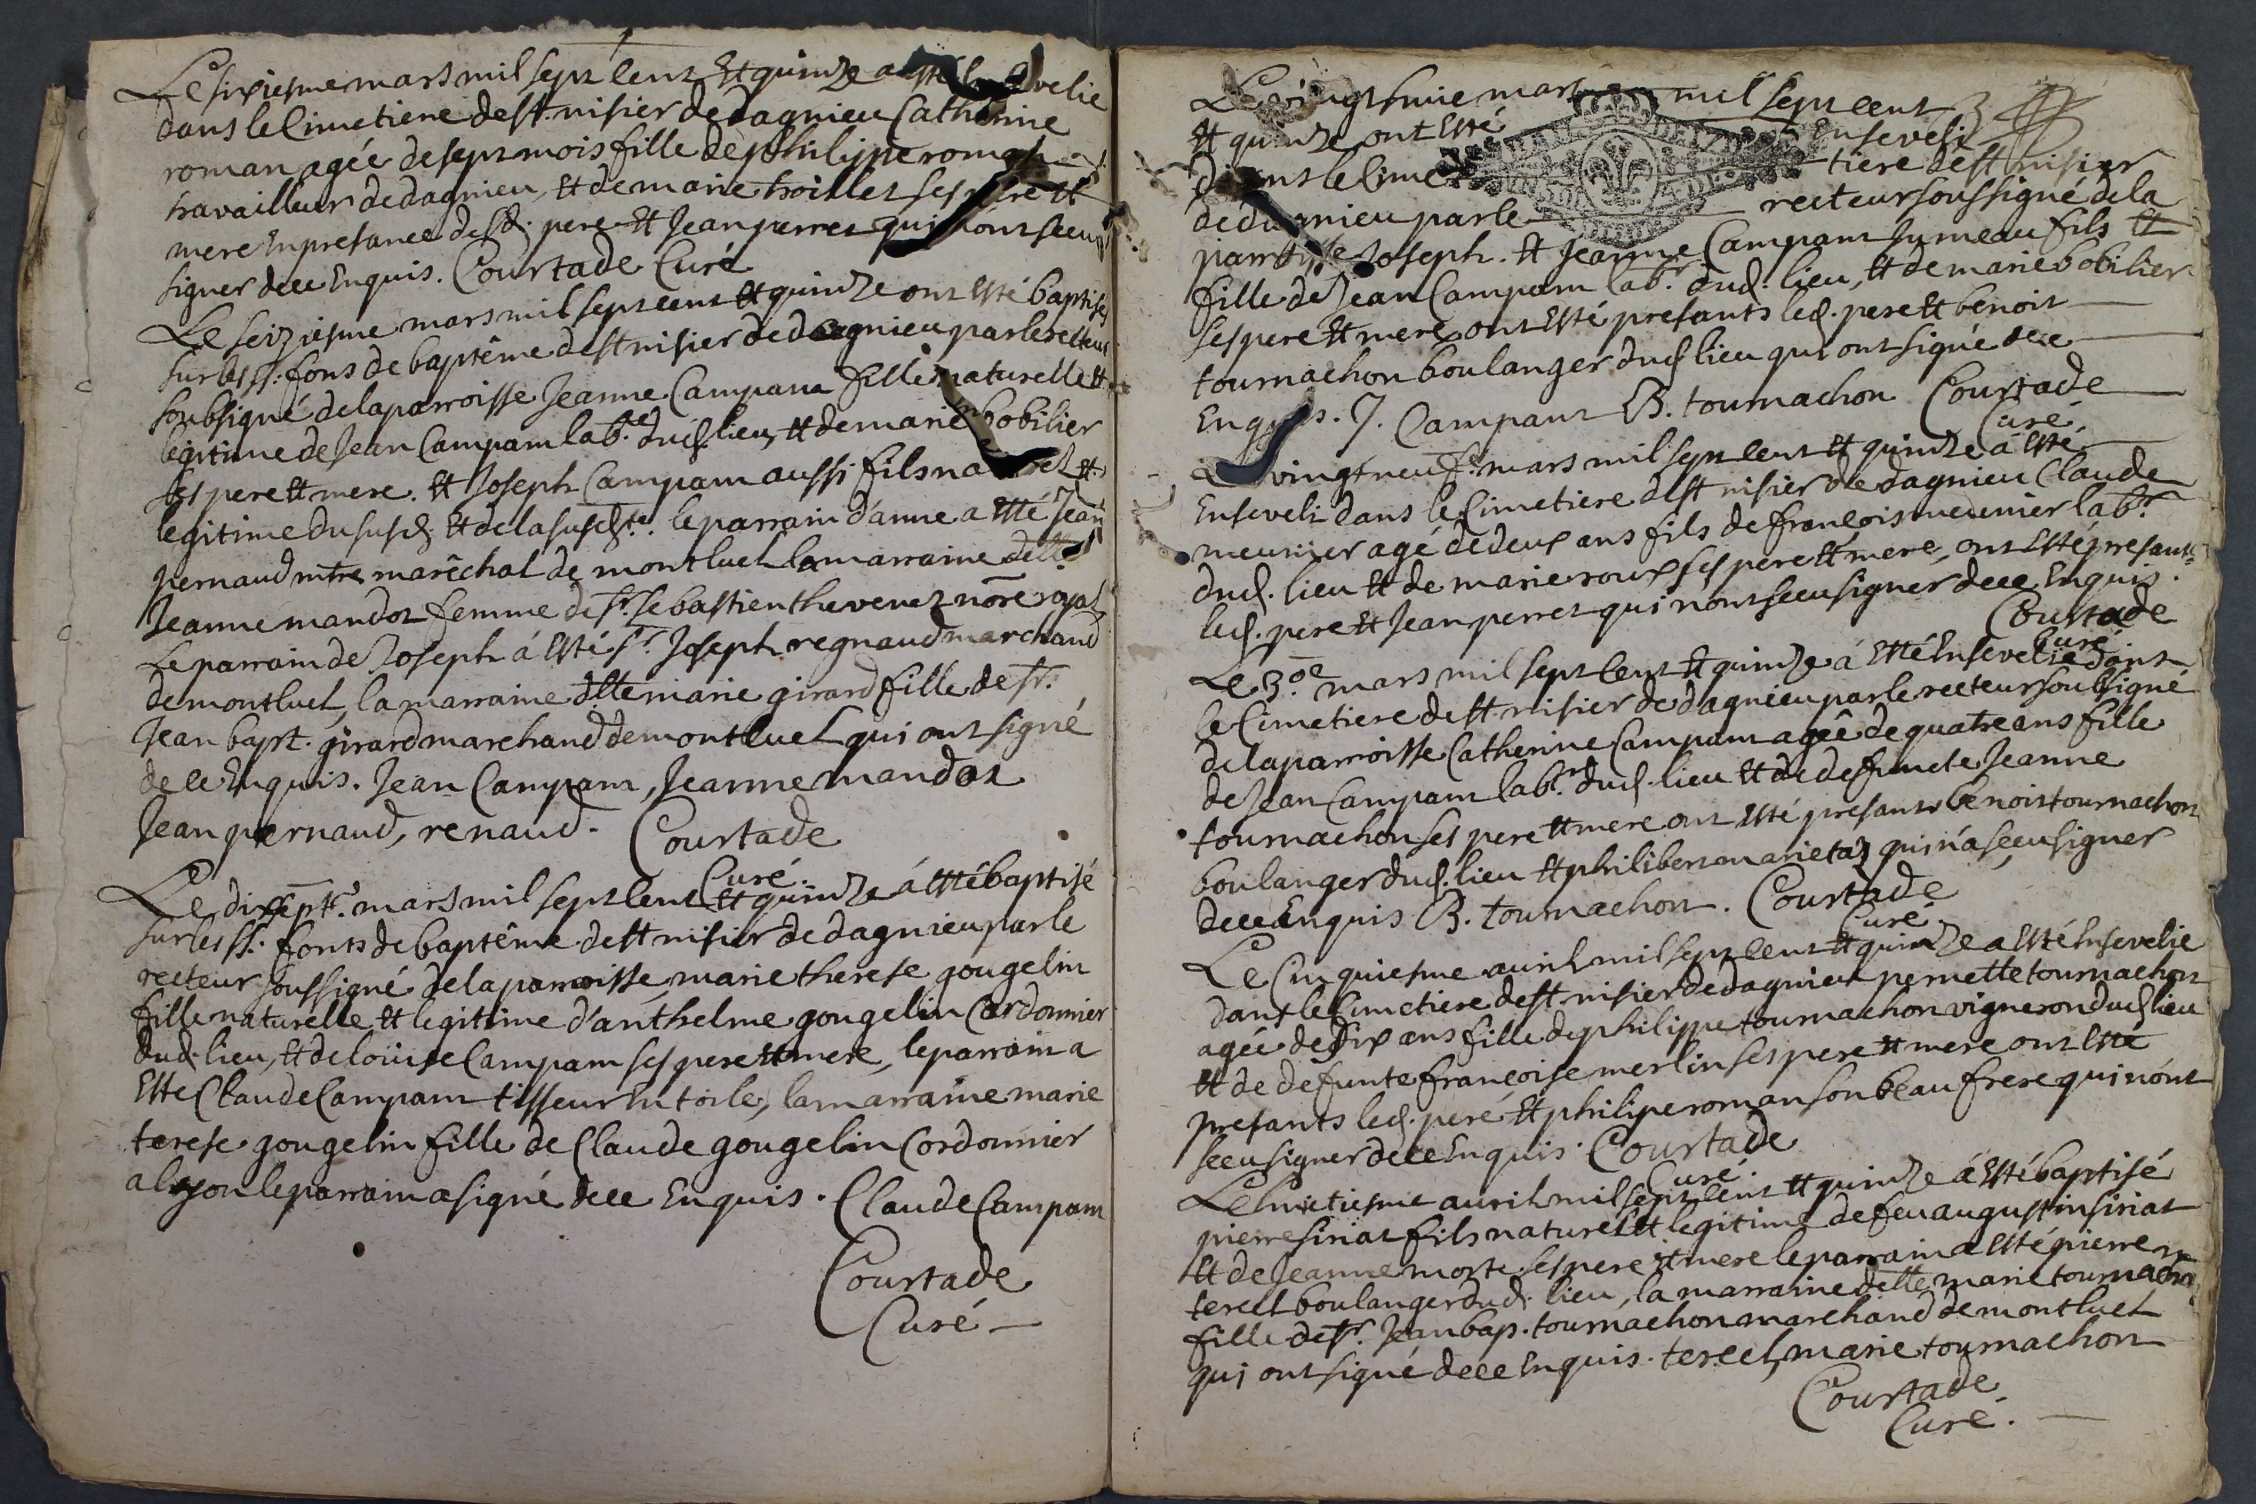 Le sixiesme mars mil sept cent Et quinze a esté Ensevelie
dans le Cimetiere de st. nisier de dagnieu Catherine
roman agée de sept mois fille de philippe roman
travailleur de dagnieu, Et de marie troillet ses pere Et
mere En presance desd. pere Et Jean perret qui n'ont sceu
signer de ce Enquis. Courtade Curé
Le seiziesme mars mil sept cent Et quinze ont Esté baptises
sur les ss. fons de baptême de st nisier de dagnieu par le recteur
soubsigné de la parroisse Jeanne Campam fille naturelle Et
legitime de Jean Campam lab.r dud. lieu, Et de marie bobilier
ses pere Et mere. Et Joseph Campam aussi fils naturel Et
legitime du susd. Et de la susd.te. le parrain d'anne a Esté Jean
pernaud mtre marêchal de montluel la marraine delle
Jeanne mandot femme de sr. sebastien thevenet nore royal
Le parrain de Joseph á Esté sr. Joseph regnaud marchand
de montluel, la marraine dlle marie girard fille de sr.
Jean bapt. girard marchand de montluel qui ont signé
de ce Enquis. Jean Campam, Jeanne mandot
Jean pernaud, renaud. Courtade
Curé.
Le dix sept.e mars mil sept cent Et quinze á Esté baptisé
sur les ss. fonts de baptême de st nisier de dagnieu par le
recteur soussigné de la parroisse marie therese gougelin
fille naturelle Et legitime d'anthelme gougelin Cordonnier
dud. lieu, Et de loüise Campam ses pere Et mere, le parrain a
Esté Claude Campam tisseur En toile, la marraine marie
terese gougelin fille de Claude gougelin Cordonnier
a lyon le parrain a signé de ce Enquis. Claude Campam
Courtade
Curé
Le vingt huit mars mil sept cent
Et quinze ont Esté Ensevelis
dans le Cimetiere de st nisier
de dagnieu par le recteur soussigné de la
parroisse Joseph. Et Jeanne Campam Jumeau fils Et
fille de Jean Campam lab.r dud. lieu, Et de marie bobilier
ses pere Et mere ont Esté presants led. pere Et benoit
tournachon boulanger dud. lieu qui ont signé de ce
Enquis. J. Campant B. tournachon Courtade
Curé.
Le vingt neuf.e mars mil sept cent Et quinze á Esté
Enseveli dans le Cimetiere de st nisier de dagnieu Claude
meunier agé de deux ans fils de françois meunier lab.r
dud. lieu Et de marie roux ses pere Et mere, ont Esté presants
led. pere Et Jean perret qui n'ont sceu signer de ce Enquis.
Courtade
Curé
Le 30e mars mil sept cent Et quinze á Esté Ensevelie dans
le Cimetiere de st nisier de dagnieu par le recteur soubsigné
de la parroisse Catherine Campam agée de quatre ans fille
de Jean Campam lab.r dud. lieu Et de defuncte Jeanne
tournachon ses pere Et mere ont Esté presants benoist tournachon
boulanger dud. lieu Et philibert marietaz qui n'a sceu signer
de ce Enquis B. tournachon. Courtade
Curé.
Le Cinquiesme avril mil sept cent Et quinze a Esté Ensevelie
dans le Cimetiere de st nisier de dagnieu pernette tournachon
agée de dix ans fille de philippe tournachon vigneron dud. lieu
Et de defunte françoise merlin ses pere Et mere ont Esté
presants led. pere Et philipe roman son beau frere qui n'ont
sceu signer de ce Enquis. Courtade
Curé
Le huitiesme avril mil sept cent Et quinze á Esté baptisé
pierre siriat fils naturel Et legitime de feu augustin siriat
Et de Jeanne morte ses pere Et mere le parrain a Esté pierre
terest boulanger dud. lieu, la marraine delle marie tournachon
fille de sr. Jean bap. tournachon marchand de montluel
qui ont signé de ce Enquis. marie tournachon
Courtade
Curé.